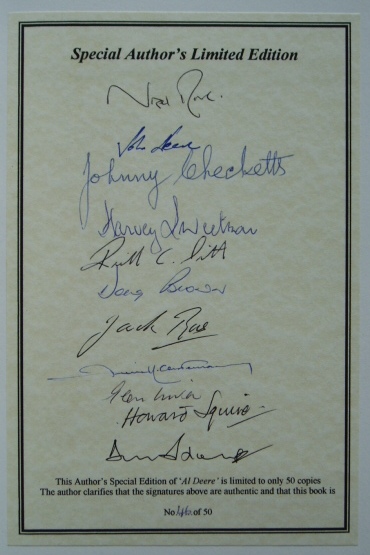 Special Author's Limited Edition
John Deere
Johnny Checketts
Harvey Sweetman
C. Pitt
Doug Brown
Jack Rae
Howard Squire
This Author's Special Edition of 'Al Deere' is limited to only 50 copies
The author clarifies that the signatures above are authentic and that this book is
No of 50